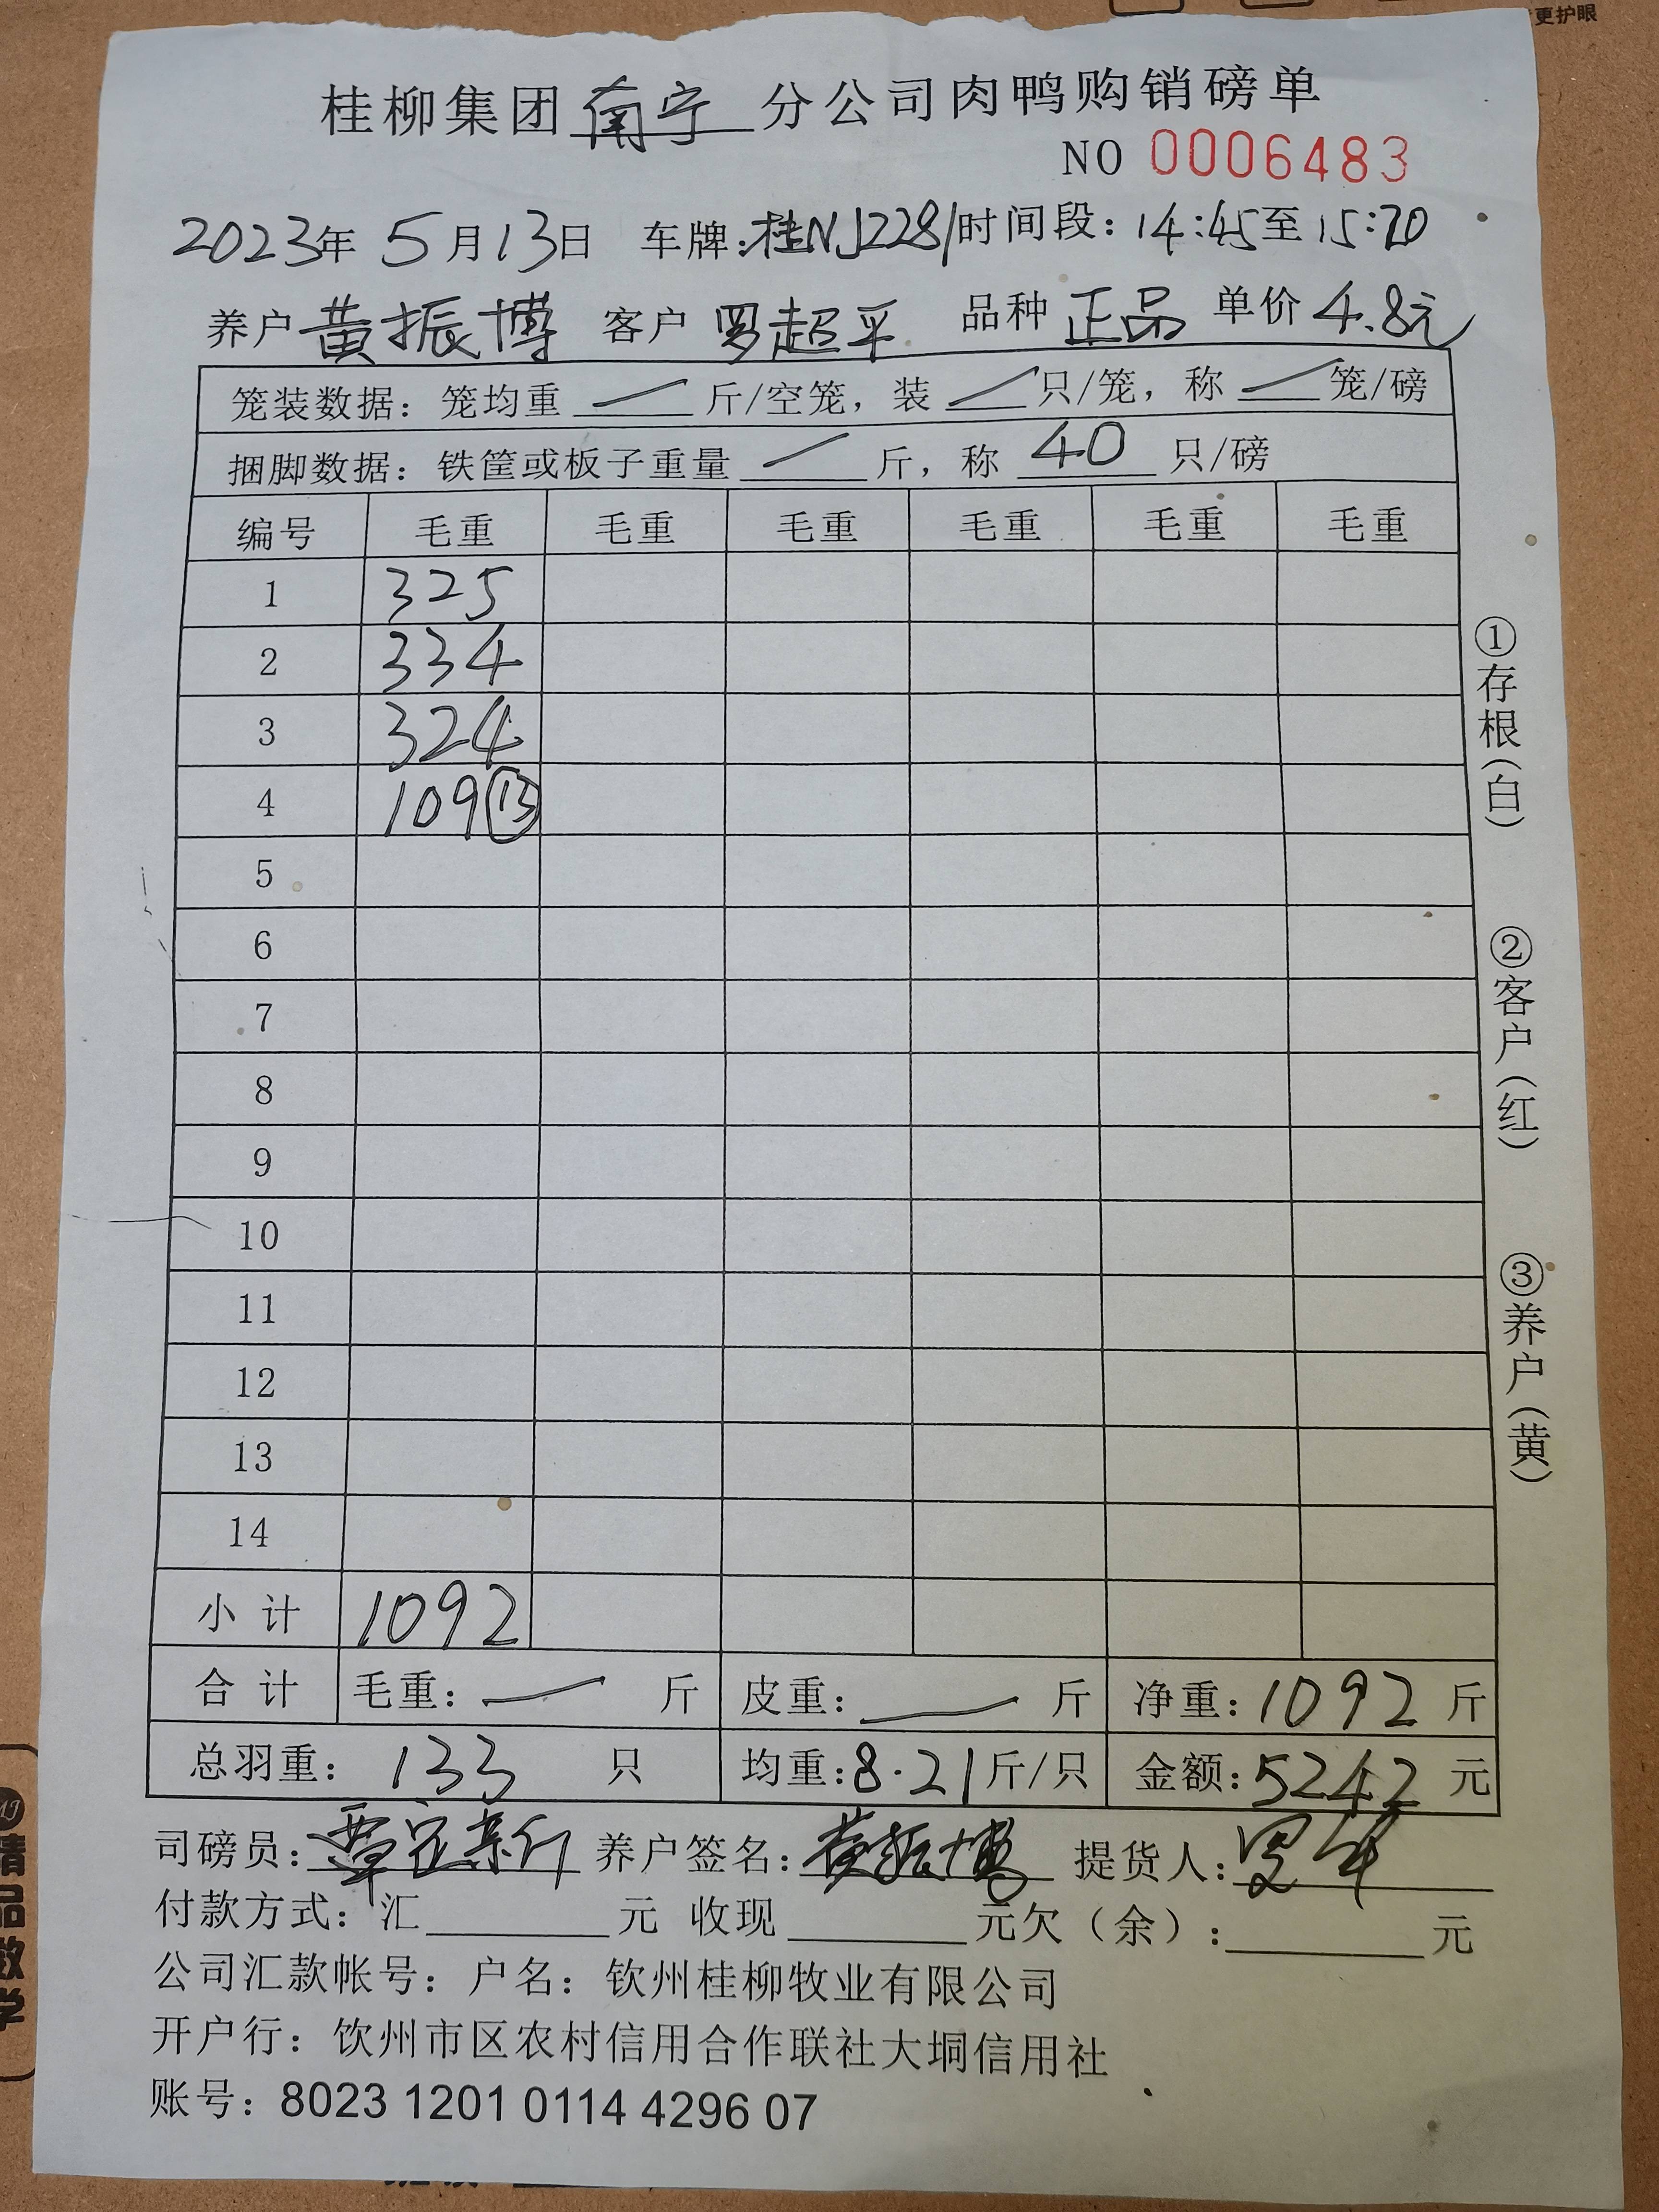 更护眼
桂柳集团南宁分公司肉鸭购销磅单
NO 0006483
2023年 5月13日 车牌:桂NJ2281 时间段：14:45至15:20
养户 黄振博 客户 罗超平 品种 正品 单价 4.8元
笼装数据：笼均重 — 斤/空笼，装 — 只/笼，称 — 笼/磅
捆脚数据：铁筐或板子重量 — 斤，称 40 只/磅
编号 毛重 毛重 毛重 毛重 毛重 毛重
1 325
2 334
3 324
4 109⑬
5
6
7
8
9
10
11
12
13
14
小计 1092
合计 毛重：— 斤 皮重：— 斤 净重：1092 斤
总羽重：133 只 均重：8.21斤/只 金额：5242 元
司磅员： 养户签名：黄振博 提货人：
付款方式：汇 元 收现 元欠（余）： 元
公司汇款帐号：户名：钦州桂柳牧业有限公司
开户行：饮州市区农村信用合作联社大垌信用社
账号：8023 1201 0114 4296 07
①存根（白）
②客户（红）
③养户（黄）
精品教学